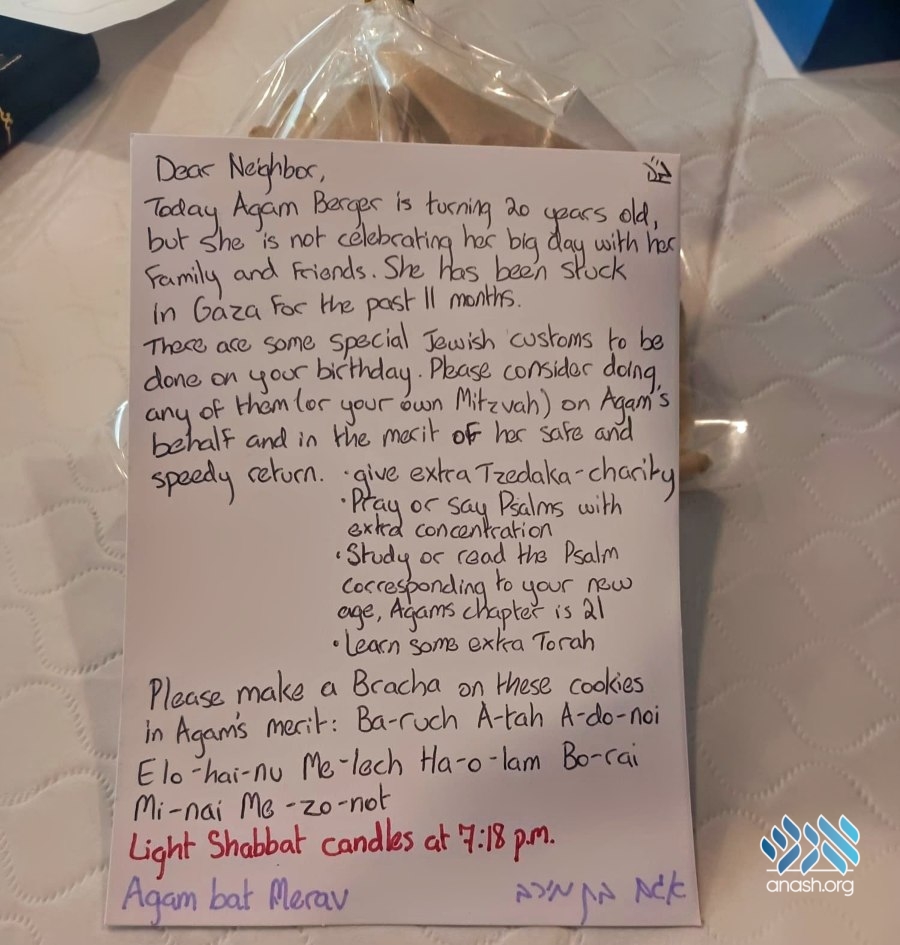 בס"ד
Dear Neighbor,
Today Agam Berger is turning 20 years old,
but she is not celebrating her big day with her
Family and Friends. She has been stuck
in Gaza For the past 11 months.
There are some special Jewish customs to be
done on your birthday. Please consider doing
any of them (or your own Mitzvah) on Agam's
behalf and in the merit of her safe and
speedy return. · give extra Tzedaka-charity
· Pray or say Psalms with
extra concentration
· Study or read the Psalm
corresponding to your new
age, Agams chapter is 21
· Learn some extra Torah
Please make a Bracha on these cookies
in Agam's merit: Ba-ruch A-tah A-do-noi
Elo-hai-nu Me-lech Ha-o-lam Bo-rai
Mi-nai Me-zo-not
Light Shabbat candles at 7:18 p.m.
Agam bat Merav אגם בת מירב
אנש
anash.org